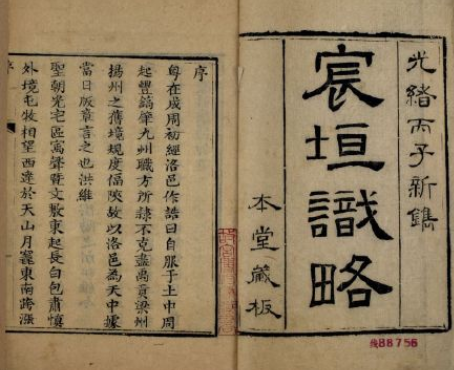 光緒丙子新鐫
宸垣識略
本堂藏板
88756
序
粵在成周初經洛邑作誥曰自服于土中周
起豐鎬肇九州職方所隸不克盡禹貢梁州
揚州之舊境規度偪陜故以洛邑為天中據
當日版章言之也洪維
聖朝光宅區寓聲暨文敷東起長白包肅慎
外境屯牧相望西逹於天山月竁東南跨漲